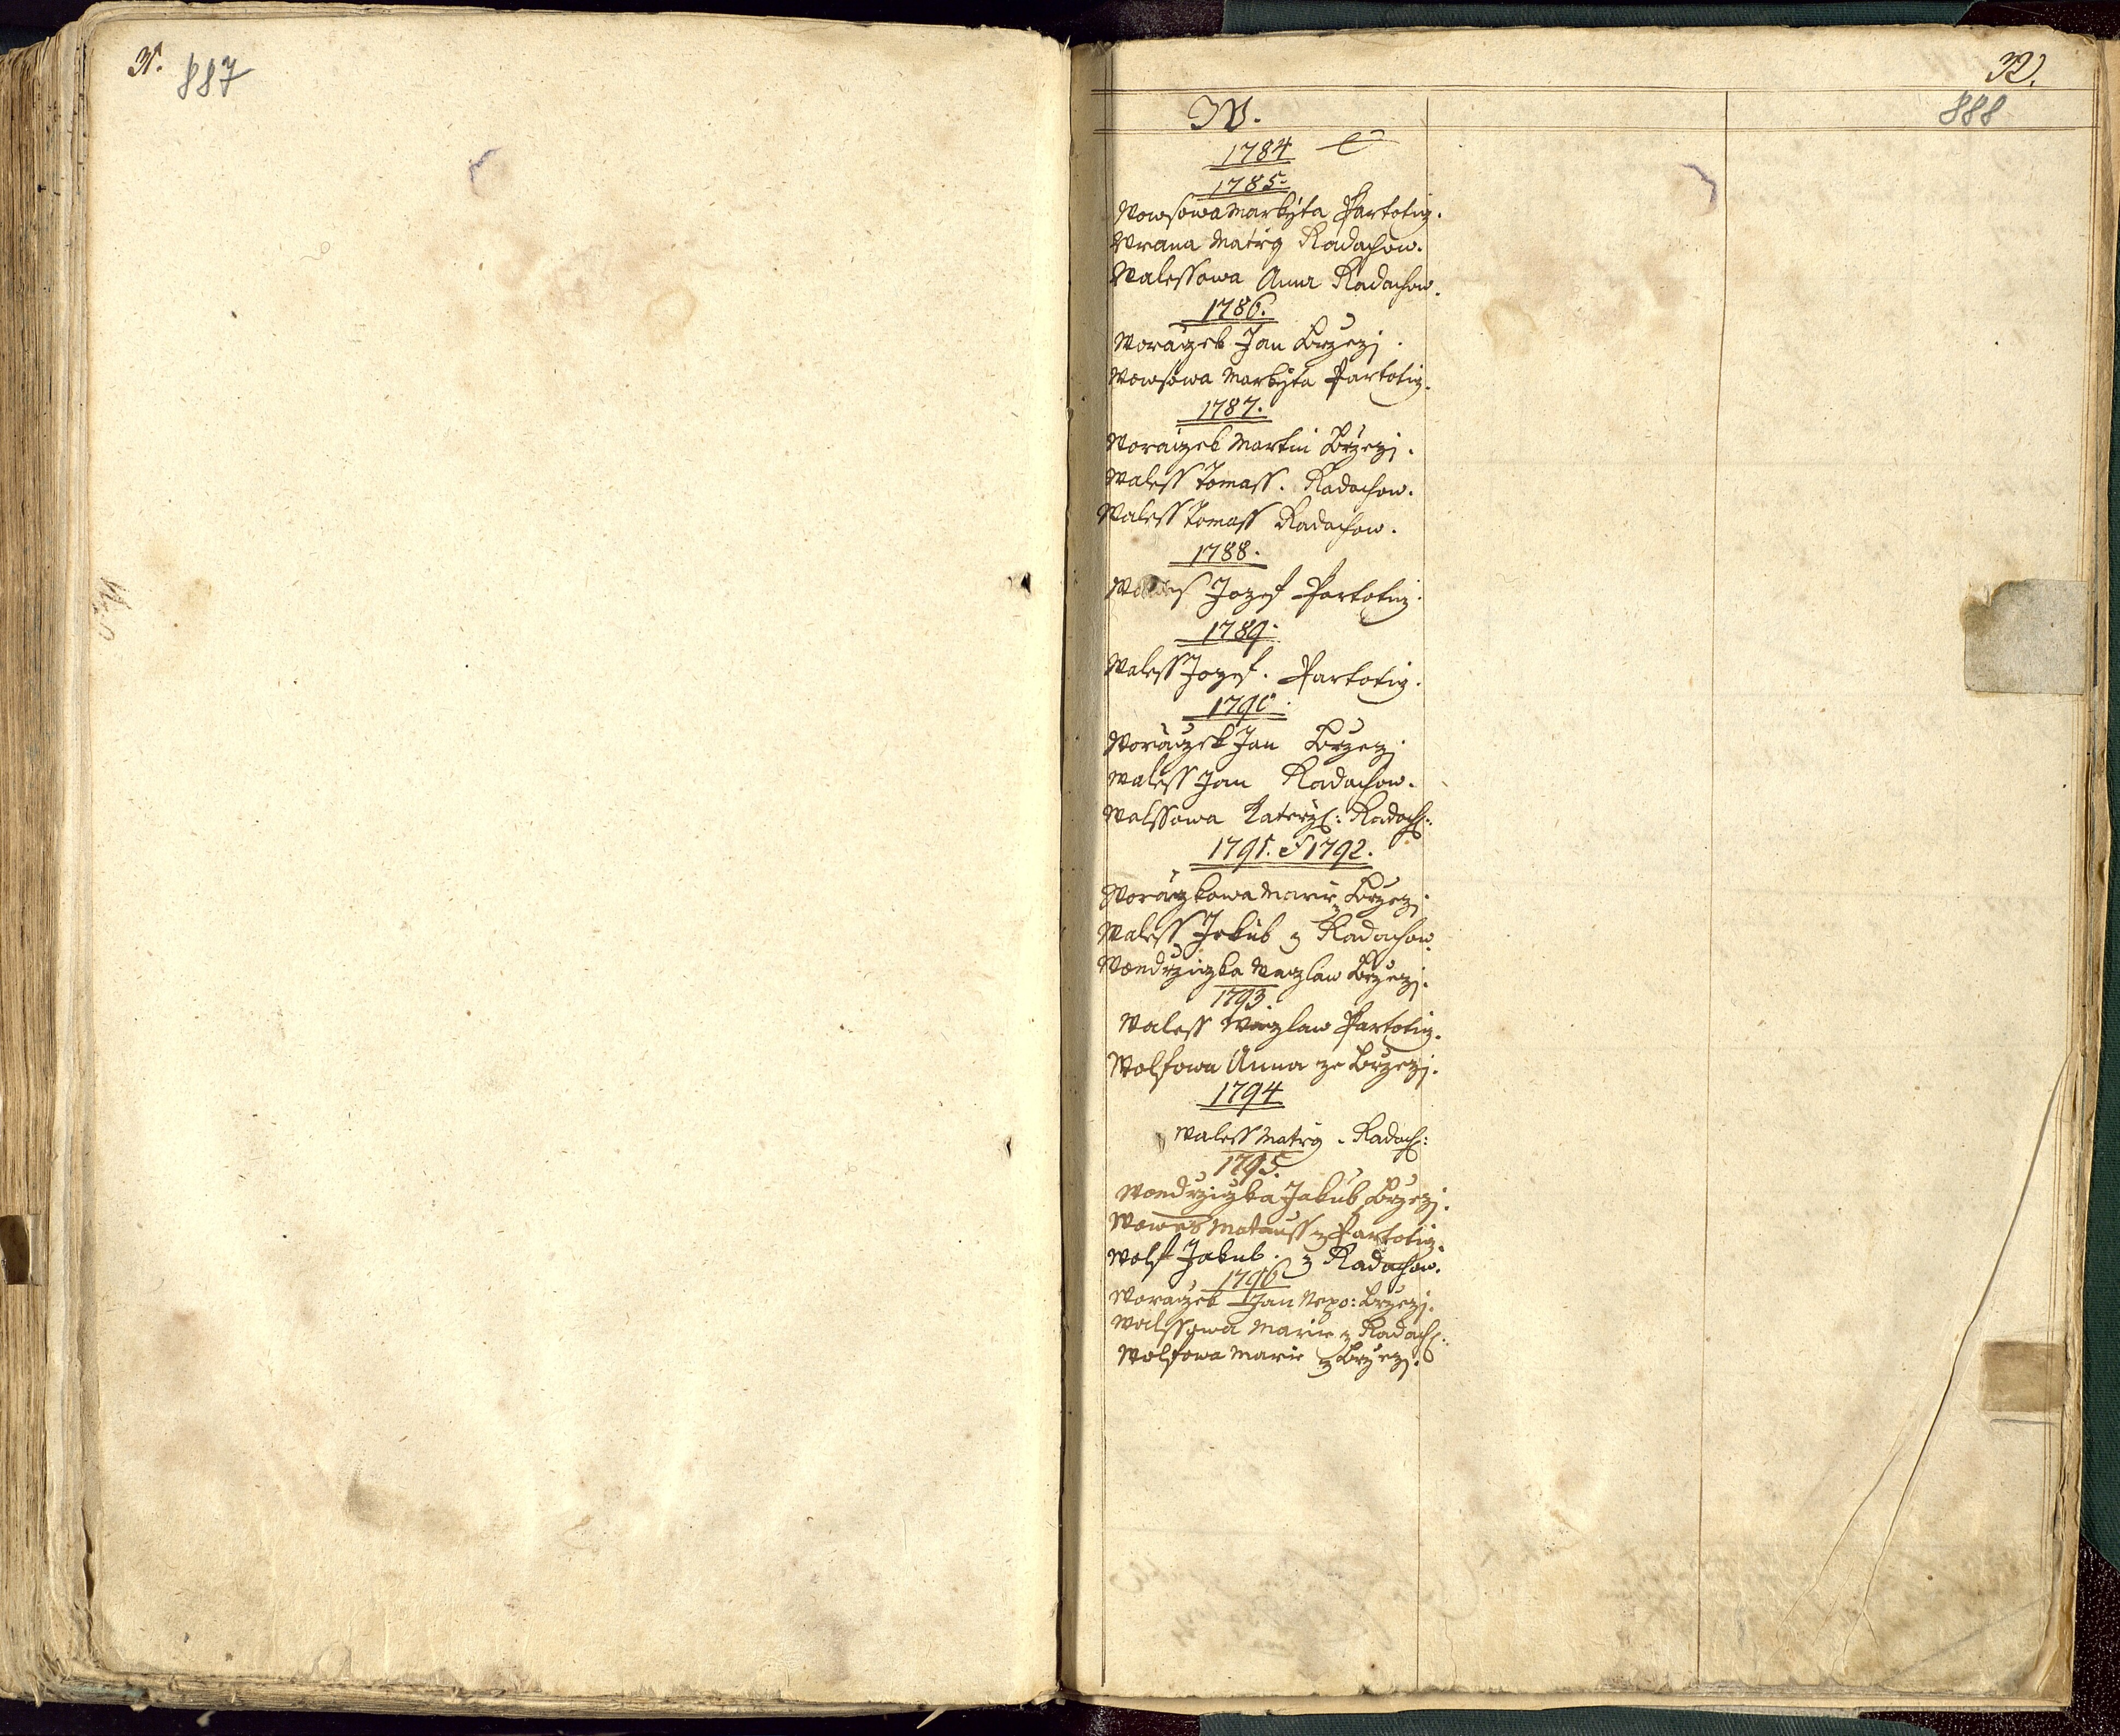 31.
887
32.
888
W.
1784
1785.
Wowsowa Markyta Partotiz.
Wrana Matieg Radachow.
Walessowa Anna Radachow.
1786.
Woraczek Jan Brzezj.
Wowsowa Markyta Partotiz.
1787.
Woraczek Martin Brzezj.
Waless Tomass. Radachow.
Waless Tomass Radachow.
1788.
Jozef Partotiz.
1789.
Waless Jozef. Partotiz.
1790.
Woraczek Jan Brzezj
Waless Jan Radachow.
Walssowa Katerz: Radach:
1791. 1792.
Woraczkowa Marie Brzezj.
Waless Jakub z Radachow.
Wondrziczka Waczlaw Brzezj.
1793.
Waless Waczlaw Partotiz.
Wolfowa Anna ze Brzezj.
1794
Waless Matieg. Radach:
1795.
Wondrziczka Jakub Brzezj.
Matauss z Partotiz.
Wolf Jakub. z Radachow.
1796
Woraczek Jan Nepo: Brzezj.
Walssowa Marie z Radach:
Wolfowa Marie z Brzezj.